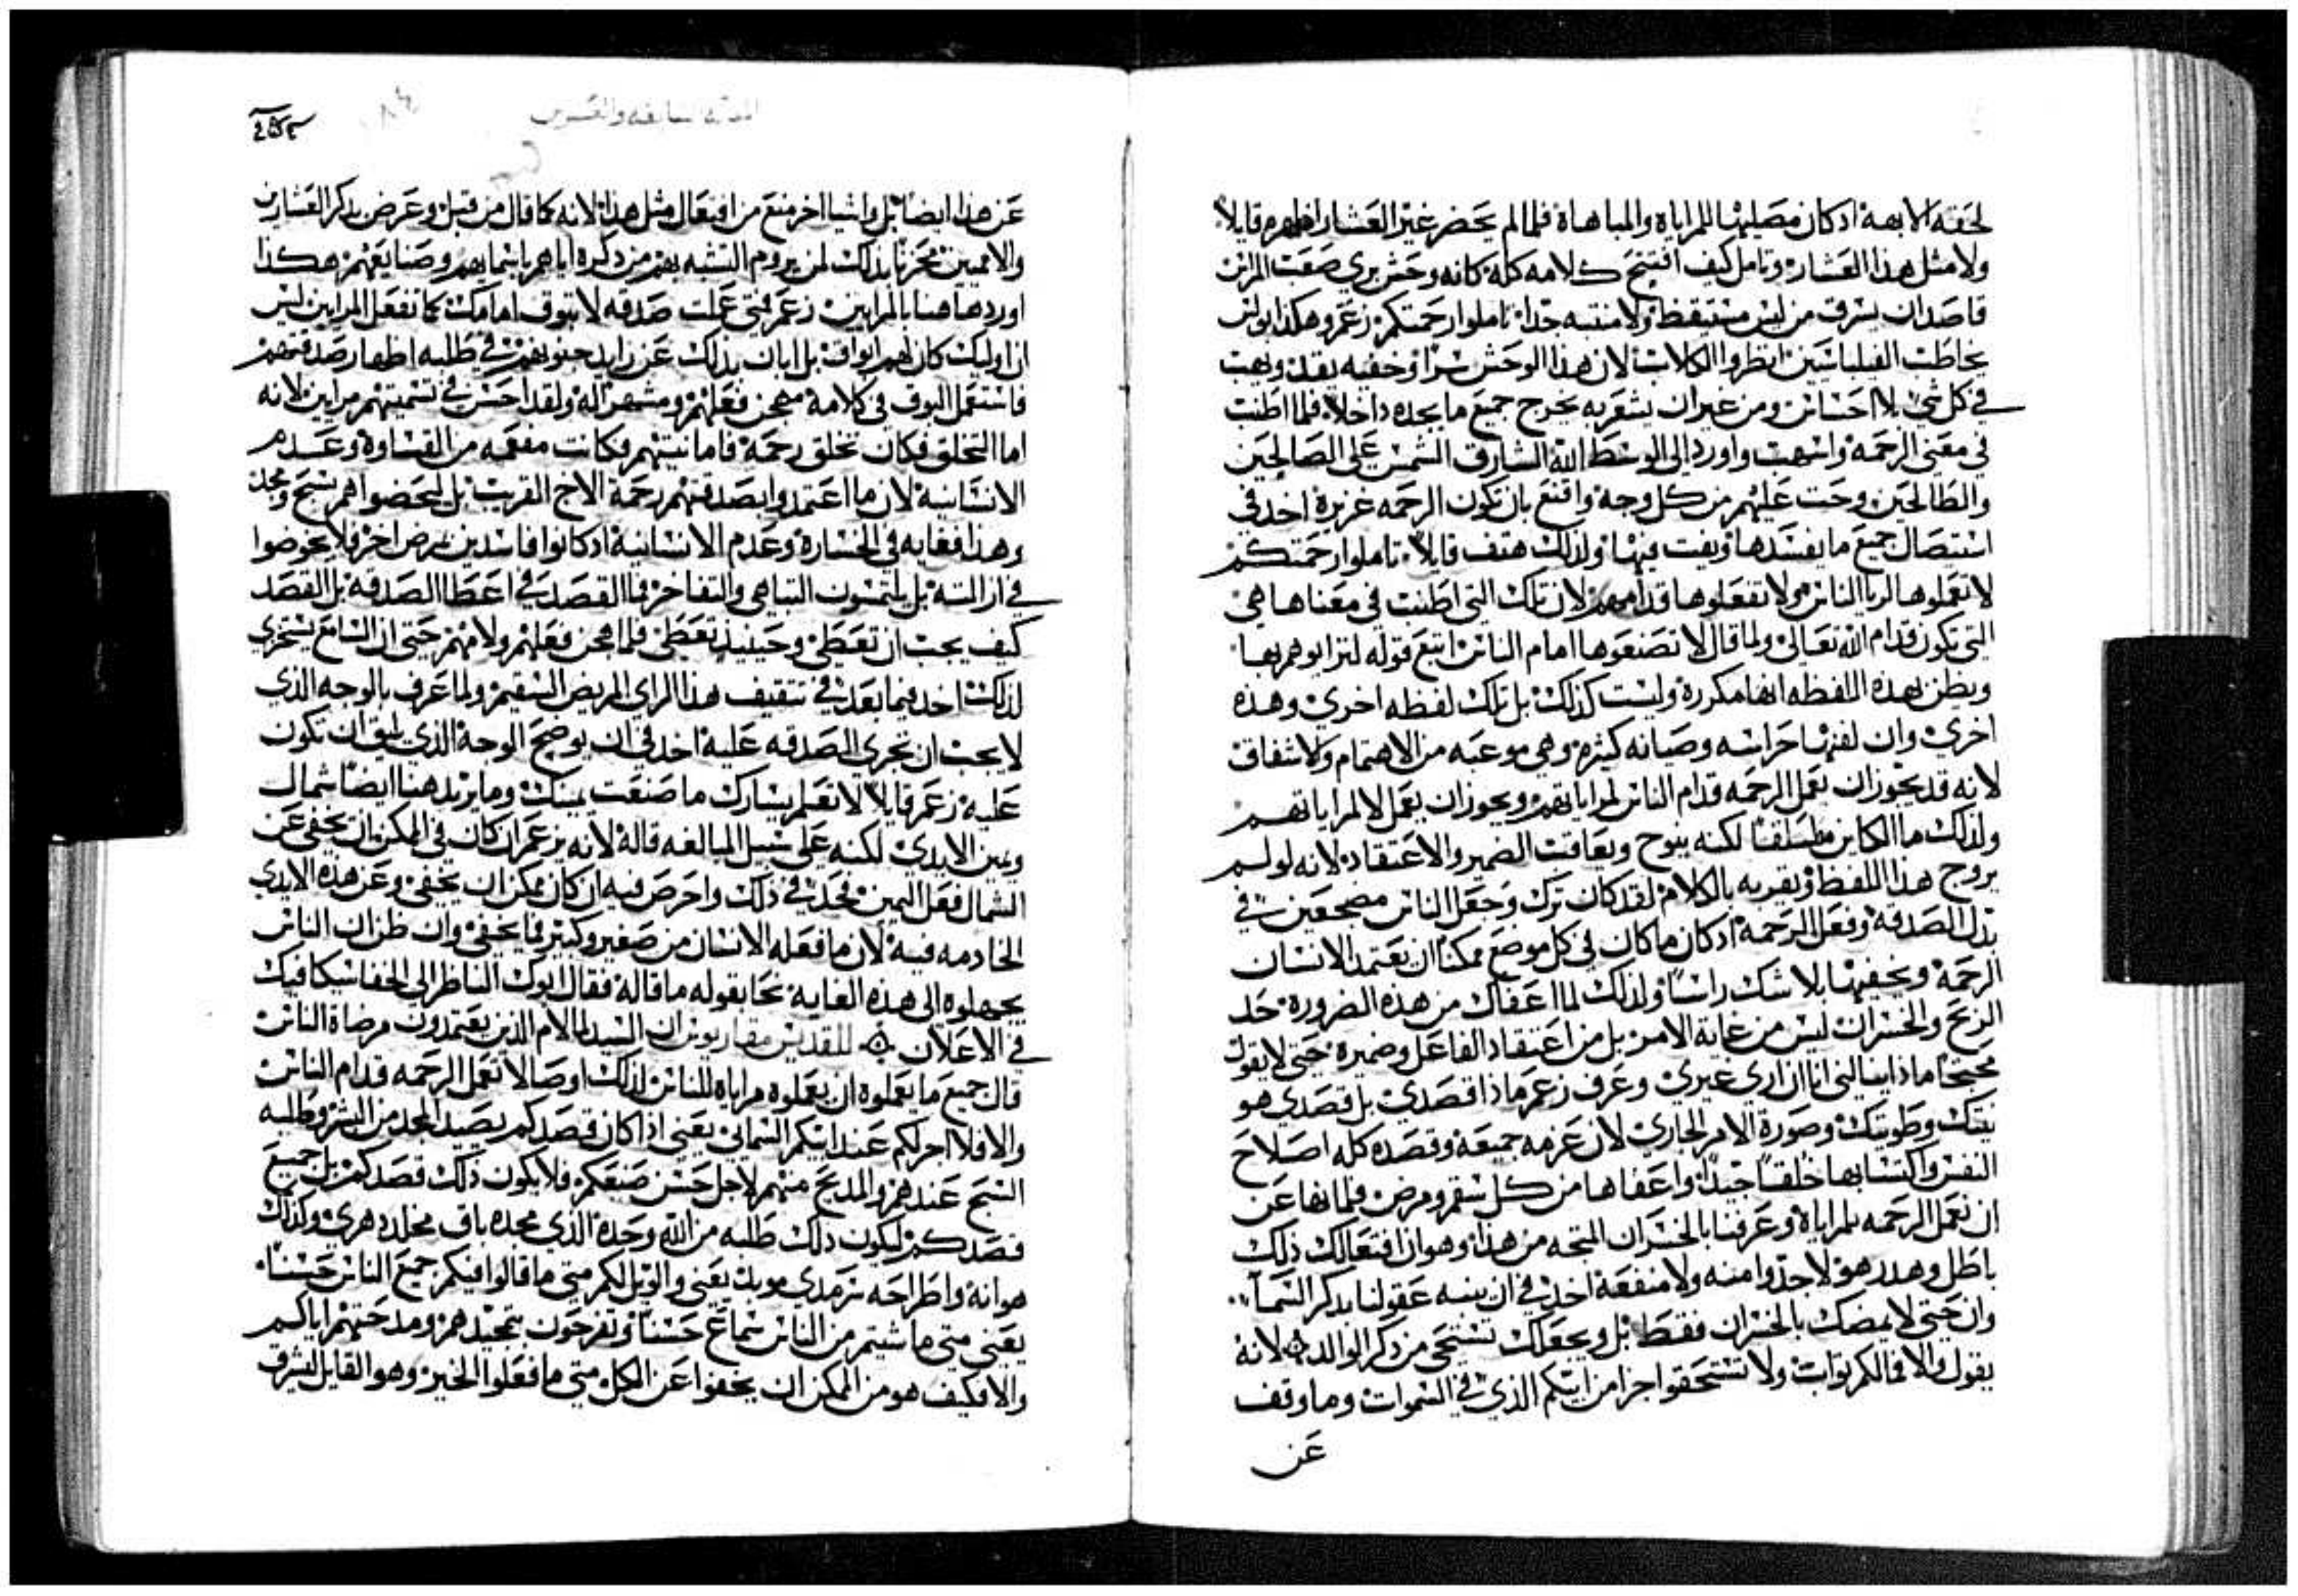 لحقته الابهة ادكان مصليهما للمراياة والمباهاة فلما لم يحضر غير العشار اظهره قايلاً
ولا مثل هذا العشار وتامل كيف افتتح كلامه كله كانه وحش بري صعب المراس
قاصد ان يسرق من ليس مستيقظ ولا منتبه حذاء تاملوا رحمتكم زعم وهكذا بولس
يخاطب الفيلباسيين انظروا الكلاب لان هذا الوحش سراً وخفيه يقد ويهب
في كل شي بلا احساس ومن غير ان يشعر به يخرج جميع ما يجده داخلاً فلما اطنب
في معنى الرحمة واسهب واورد الى الوسط الله الشارق الشمس على الصالحين
والطالحين وحث عليهم من كل وجه واقنع بان تكون الرحمه غزيرة اخد في
استيصال جميع ما يفسدها ويفت فيها ولذلك هتف قايلاً تاملوا رحمتكم
لا تعملوها لريا الناس ولا تفعلوها قدامهم لان تلك التي اطنب في معناها هي
التي تكون قدام الله تعالى ولما قال لا تصنعوها امام الناس اتبع قوله لترايوهم بها
ويظن بهده اللفظه انها مكررة وليست كذلك بل تلك لفظه اخرى وهذه
اخرى وان لفيها حراسه وصيانه كثيره وهي موعبه من الاهتمام ولاشفاق
لانه قد يجوز ان يعمل الرحمه قدام الناس لمراياتهم ويجوز ان يعمل لا لمراياتهم
ولذلك ما الكاين مطلقا لكنه ينوح ويعاقب الضمير والاعتقاد لانه لو لم
يروج هذا اللفظ ويقربه بالكلام لقد كان ترك وجعل الناس مضجعين في
بذل الصدقة وفعل الرحمة ادكان ما كان في كل موضع ممكنا ان يعتمد الانسان
الرحمة ويخفيها بلا شك راساً ولذلك لما اعفاك من هذه الضرورة حد
الربح والخسران ليس من غاية الامر بل من اعتقاد الفاعل وضميره حتى لا يقول
محتجا ماذا ينالني انا ان ارى غيري وعرف زعم ماذا قصدي بل قصدي هو
نيتك وطويتك وصورة الامر الجاري لان عزمه جميعه وقصده كله اصلاح
النفس واكتسابها خلقاً جيداً واعفاها من كل سقم ومرض فلما نها عن
ان نعمل الرحمه للمراياة وعرفنا بالخسران المتجه من هذا وهو ان افتعالك ذلك
باطل وهدر هو لا جدوا منه ولا منفعة اخد في ان ينبه عقولنا بدكر السما
وان حتى لا يمضك بالخسران فقط بل ويجعلك تستحي من دكر الوالد لانه
يقول والا فمالكم ثواب ولا تستحقوا اجرا من ابيكم الذي في السموات وما وقف
عن
عن هذا ايضا بل واشيا اخر منع من افتعال مثل هذا لانه كما قال من قبل وعرض بدكر العشارين
والامميين محزنا بذلك لمن يروم التشبه بهم من دكره اياهم باسمايهم وصنايعهم هكذا
اوردها هنا بالمرايين زعم فمتى عملت صدقه لا تبوق امامك كما تفعل المرايين ليس
ان اوليك كان لهم ابواق بل ابان بذلك عن زايد جنونهم في طلبه اظهار صدقتهم
فاستعمل البوق في كلامه مهجن فعلهم ومشهراله ولقد احسن في تسميتهم مرايين لانه
اما التخلق فكان تخلق رحمة فاما نيتهم فكانت مفعمه من القساوة وعدم
الانسانية لان ما اعتمدوا بصدقتهم رحمة الاخ القريب بل ليحضوا هم بسبح ومجد
وهذا فغايه في الخسارة وعدم الانسانية ادكانوا فاسدين بمرض اخر فلا يخوضوا
في ازالته بل يلتمسون التباهي والتفاخر فما القصد في اعطا الصدقه بل القصد
كيف يجب ان تعطى وحينيذ تعطى فلما هجن فعلهم ولامهم حتى ان السامع يستخزي
لذلك اخد فيما بعد في تثقيف هذا الراي المريض السقيم ولما عرف بالوجه الذي
لا يجب ان تجري الصدقه عليه اخد في ان يوضح الوجه الذي يليق ان تكون
عليه زعم قايلا لا تعلم يسارك ما صنعت يمينك وما يريد هنا ايضا شمال
ويمين الايدي لكنه على سبيل المبالغه قاله لانه يزعم ان كان في الممكن ان يخفى عن
الشمال فعل اليمين فجد في ذلك واحرص فيه ان كان يمكن ان يخفى وعن هذه الايدي
الخادمه فيه لان ما فعله الانسان من صغير وكبير فما يخفى وان ظن ان الناس
يجهلوه الى هذه الغايه نحا بقوله ما قاله فقال ابوك الناظر الى الخفا سيكافيك
في الاعلان للقديس مقاريوس ان السيد لما لام الذين يعتمدون مرضاة الناس
قال جميع ما يعملوه ان يعملوه مراياه للناس لذلك اوصا لا تعمل الرحمه قدام الناس
والا فلا اجر لكم عند ابيكم السماني يعني اذا كان قصدكم تصيد المجد من البشر وطلبه
السبح عندهم والمديح منهم لاجل حسن صنعكم فلا يكون ذلك قصدكم بل جميع
قصدكم ليكون ذلك طلبه من الله وحده الذي مجده باق مخلد دهري وكذلك
هوانه واطراحه سرمدي موبد يعني والويل لكم متى ما قالوا فيكم جميع الناس حسناً
يعني متى ما شيتم من الناس سماع حسناً وتفرحون بتمجيدهم ومدحتهم اياكم
والا فكيف هو من الممكن ان يخفوا عن الكل متى ما فعلوا الخير وهو القايل ليشرق